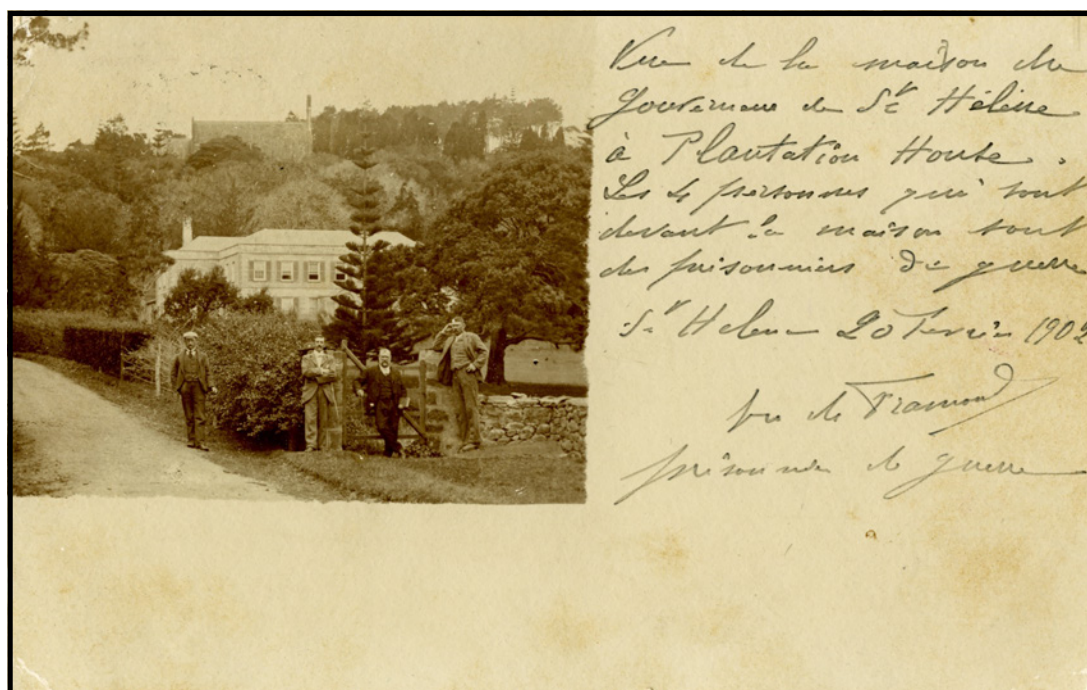 Vue de la maison du
Gouverneur de Ste Hélène
à Plantation House.
Les 4 personnes qui sont
devant la maison sont
des prisonniers de guerre
Ste Helene 20 Fevrier 1902
de Framond
prisonnier de guerre